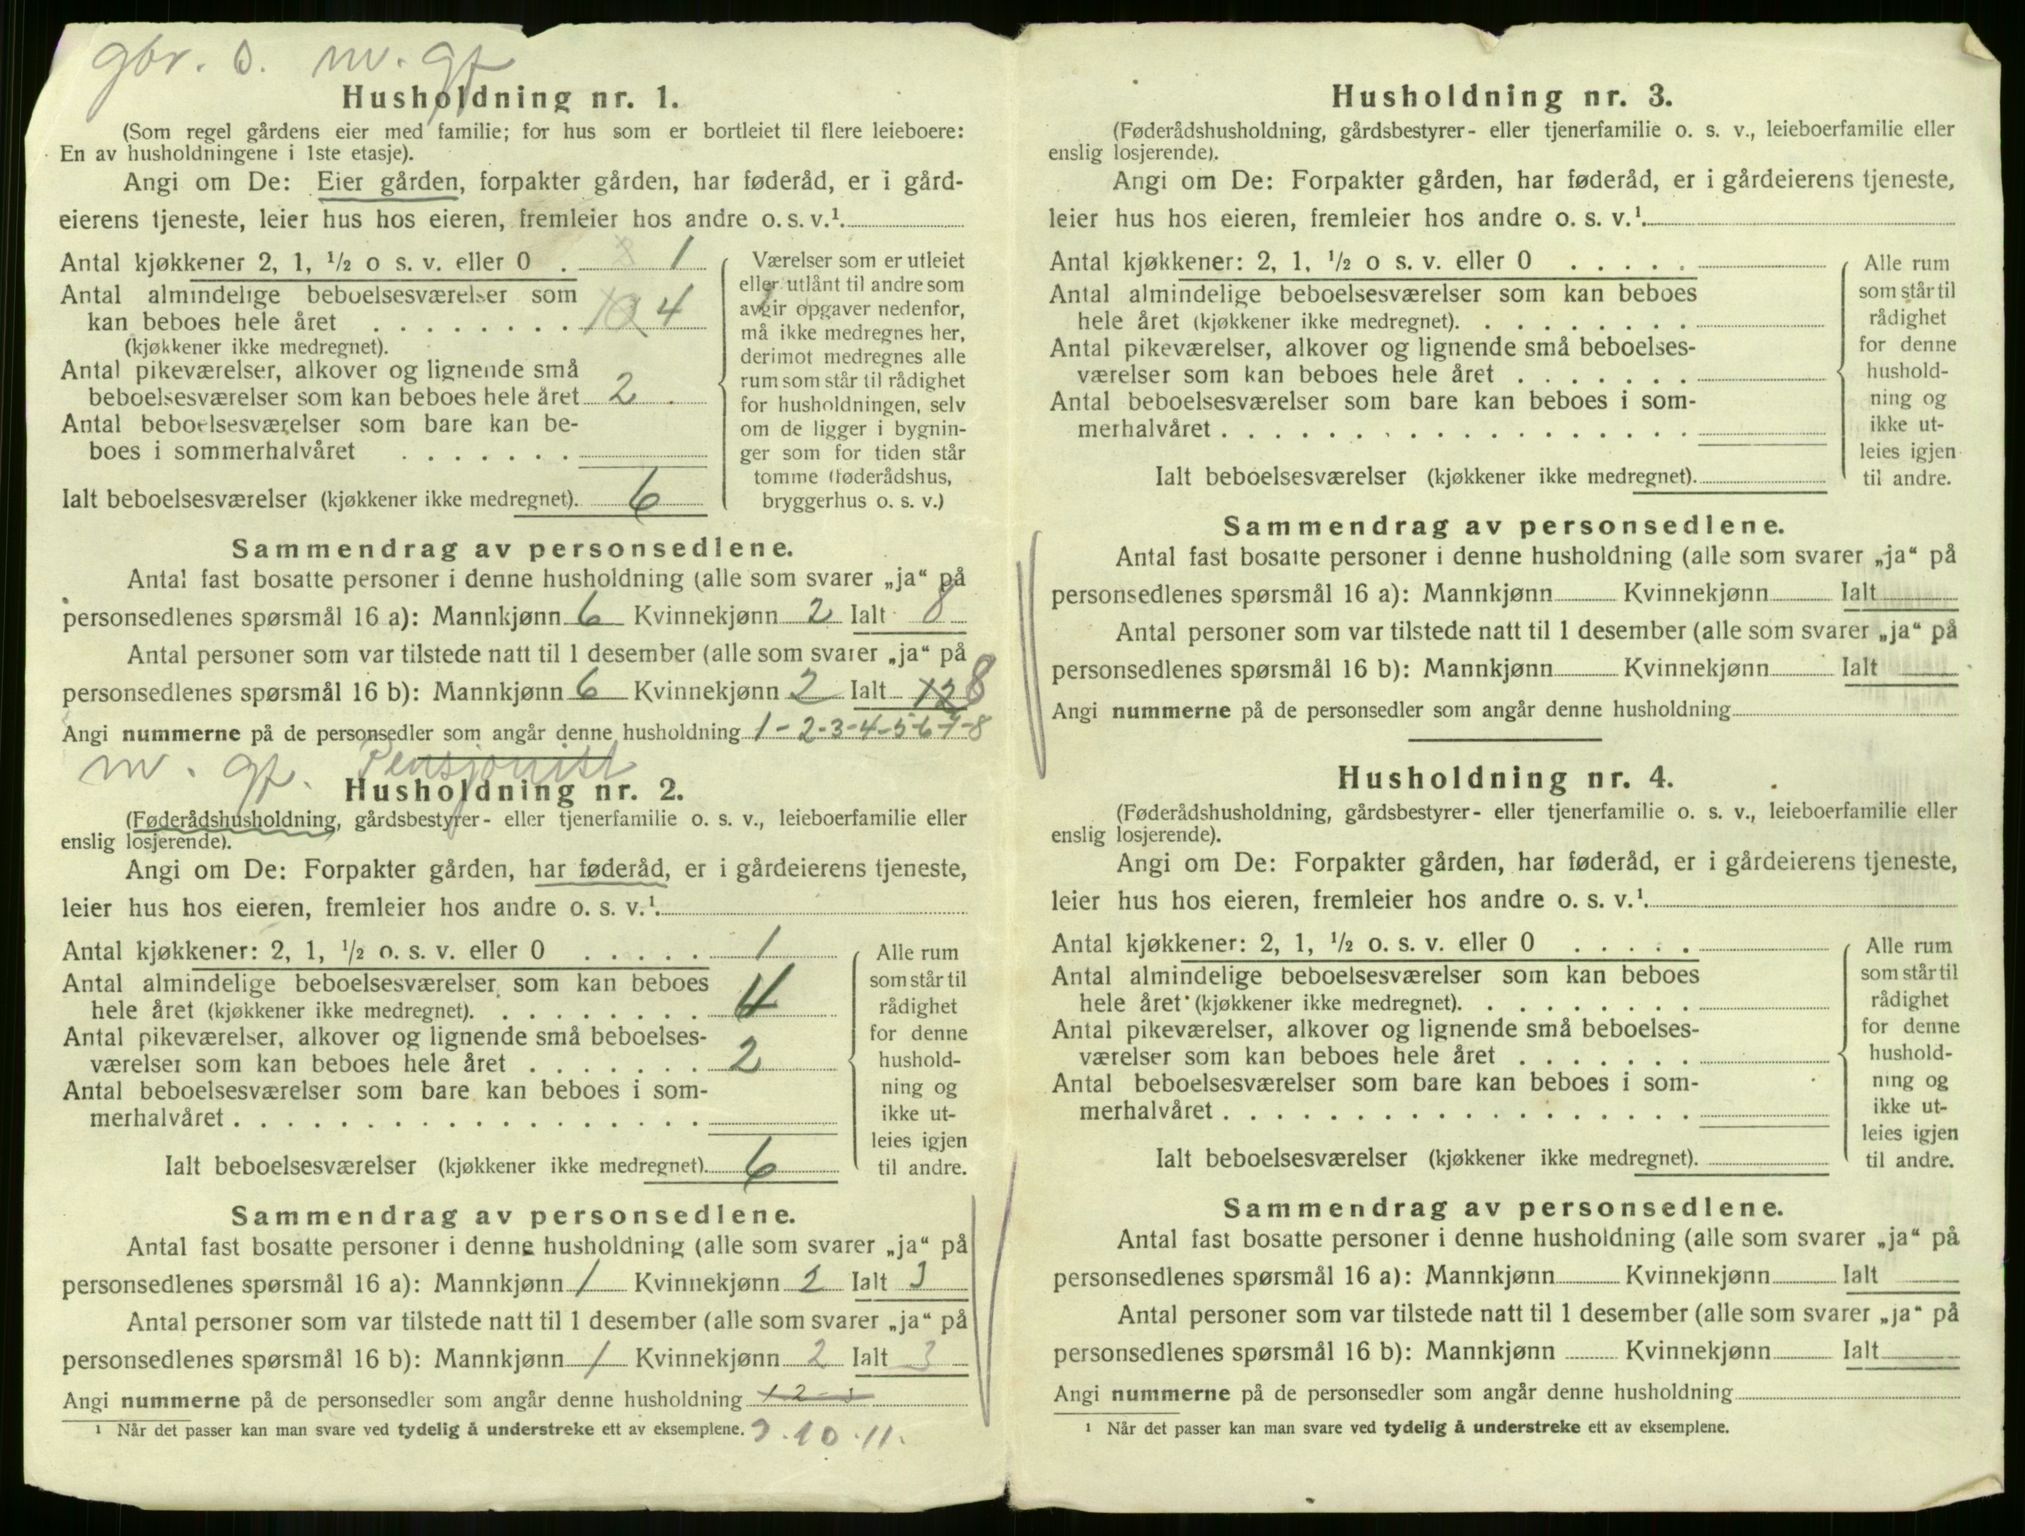 gbr. o. m. gf
Husholdning nr. 1.
(Som regel gårdens eier med familie; for hus som er bortleiet til flere leieboere:
En av husholdningene i 1ste etasje).
Angi om De: Eier gården, forpakter gården, har føderåd, er i gård-
eierens tjeneste, leier hus hos eieren, fremleier hos andre o. s. v.¹
Antal kjøkkener 2, 1, ½ o s. v. eller 0 . 1
Antal almindelige beboelsesværelser som
kan beboes hele året . . . . . . . . 4
(kjøkkener ikke medregnet).
Antal pikeværelser, alkover og lignende små
beboelsesværelser som kan beboes hele året 2
Antal beboelsesværelser som bare kan be-
boes i sommerhalvåret . . . . . . .
Ialt beboelsesværelser (kjøkkener ikke medregnet). 6
Værelser som er utleiet
eller utlånt til andre som
avgir opgaver nedenfor,
må ikke medregnes her,
derimot medregnes alle
rum som står til rådighet
for husholdningen, selv
om de ligger i bygnin-
ger som for tiden står
tomme (føderådshus,
bryggerhus o. s. v.)
Sammendrag av personsedlene.
Antal fast bosatte personer i denne husholdning (alle som svarer „ja“ på
personsedlenes spørsmål 16 a): Mannkjønn 6 Kvinnekjønn 2 Ialt 8
Antal personer som var tilstede natt til 1 desember (alle som svarer „ja“ på
personsedlenes spørsmål 16 b): Mannkjønn 6 Kvinnekjønn 2 Ialt 12 8
Angi nummerne på de personsedler som angår denne husholdning 1-2-3-4-5-6-7-8
m. gf. Pensjonist
Husholdning nr. 2.
(Føderådshusholdning, gårdsbestyrer- eller tjenerfamilie o. s. v., leieboerfamilie eller
enslig losjerende).
Angi om De: Forpakter gården, har føderåd, er i gårdeierens tjeneste,
leier hus hos eieren, fremleier hos andre o. s. v.¹
Antal kjøkkener: 2, 1, ½ o. s. v. eller 0 . . . . . 1
Antal almindelige beboelsesværelser som kan beboes
hele året (kjøkkener ikke medregnet). . . . . . . . . 4
Antal pikeværelser, alkover og lignende små beboelses-
værelser som kan beboes hele året . . . . . . . 2
Antal beboelsesværelser som bare kan beboes i som-
merhalvåret . . . . . . . . . . . . . . . . . .
Ialt beboelsesværelser (kjøkkener ikke medregnet). 6
Alle rum
som står til
rådighet
for denne
hushold-
ning og
ikke ut-
leies igjen
til andre.
Sammendrag av personsedlene.
Antal fast bosatte personer i denne husholdning (alle som svarer „ja“ på
personsedlenes spørsmål 16 a): Mannkjønn 1 Kvinnekjønn 2 Ialt 3
Antal personer som var tilstede natt til 1 desember (alle som svarer „ja“ på
personsedlenes spørsmål 16 b): Mannkjønn 1 Kvinnekjønn 2 Ialt 3
Angi nummerne på de personsedler som angår denne husholdning 1 2 - 3
¹ Når det passer kan man svare ved tydelig å understreke ett av eksemplene. 9. 10. 11.
Husholdning nr. 3.
(Føderådshusholdning, gårdsbestyrer- eller tjenerfamilie o. s. v., leieboerfamilie eller
enslig losjerende).
Angi om De: Forpakter gården, har føderåd, er i gårdeierens tjeneste,
leier hus hos eieren, fremleier hos andre o. s. v.¹
Antal kjøkkener: 2, 1, ½ o s. v. eller 0 . . . . .
Antal almindelige beboelsesværelser som kan beboes
hele året (kjøkkener ikke medregnet). . . . . . . . .
Antal pikeværelser, alkover og lignende små beboelses-
værelser som kan beboes hele året . . . . . . .
Antal beboelsesværelser som bare kan beboes i som-
merhalvåret . . . . . . . . . . . . . . . . . .
Ialt beboelsesværelser (kjøkkener ikke medregnet).
Alle rum
som står til
rådighet
for denne
hushold-
ning og
ikke ut-
leies igjen
til andre.
Sammendrag av personsedlene.
Antal fast bosatte personer i denne husholdning (alle som svarer „ja“ på
personsedlenes spørsmål 16 a): Mannkjønn Kvinnekjønn Ialt
Antal personer som var tilstede natt til 1 desember (alle som svarer „ja“ på
personsedlenes spørsmål 16 b): Mannkjønn Kvinnekjønn Ialt
Angi nummerne på de personsedler som angår denne husholdning
Husholdning nr. 4.
(Føderådshusholdning, gårdsbestyrer- eller tjenerfamilie o. s. v., leieboerfamilie eller
enslig losjerende).
Angi om De: Forpakter gården, har føderåd, er i gårdeierens tjeneste,
leier hus hos eieren, fremleier hos andre o. s. v.¹
Antal kjøkkener: 2, 1, ½ o. s. v. eller 0 . . . . .
Antal almindelige beboelsesværelser som kan beboes
hele året (kjøkkener ikke medregnet). . . . . . . . .
Antal pikeværelser, alkover og lignende små beboelses-
værelser som kan beboes hele året . . . . . . .
Antal beboelsesværelser som bare kan beboes i som-
merhalvåret . . . . . . . . . . . . . . . . . .
Ialt beboelsesværelser (kjøkkener ikke medregnet).
Alle rum
som står til
rådighet
for denne
hushold-
ning og
ikke ut-
leies igjen
til andre.
Sammendrag av personsedlene.
Antal fast bosatte personer i denne husholdning (alle som svarer „ja“ på
personsedlenes spørsmål 16 a): Mannkjønn Kvinnekjønn Ialt
Antal personer som var tilstede natt til 1 desember (alle som svarer „ja“ på
personsedlenes spørsmål 16 b): Mannkjønn Kvinnekjønn Ialt
Angi nummerne på de personsedler som angår denne husholdning
¹ Når det passer kan man svare ved tydelig å understreke ett av eksemplene.